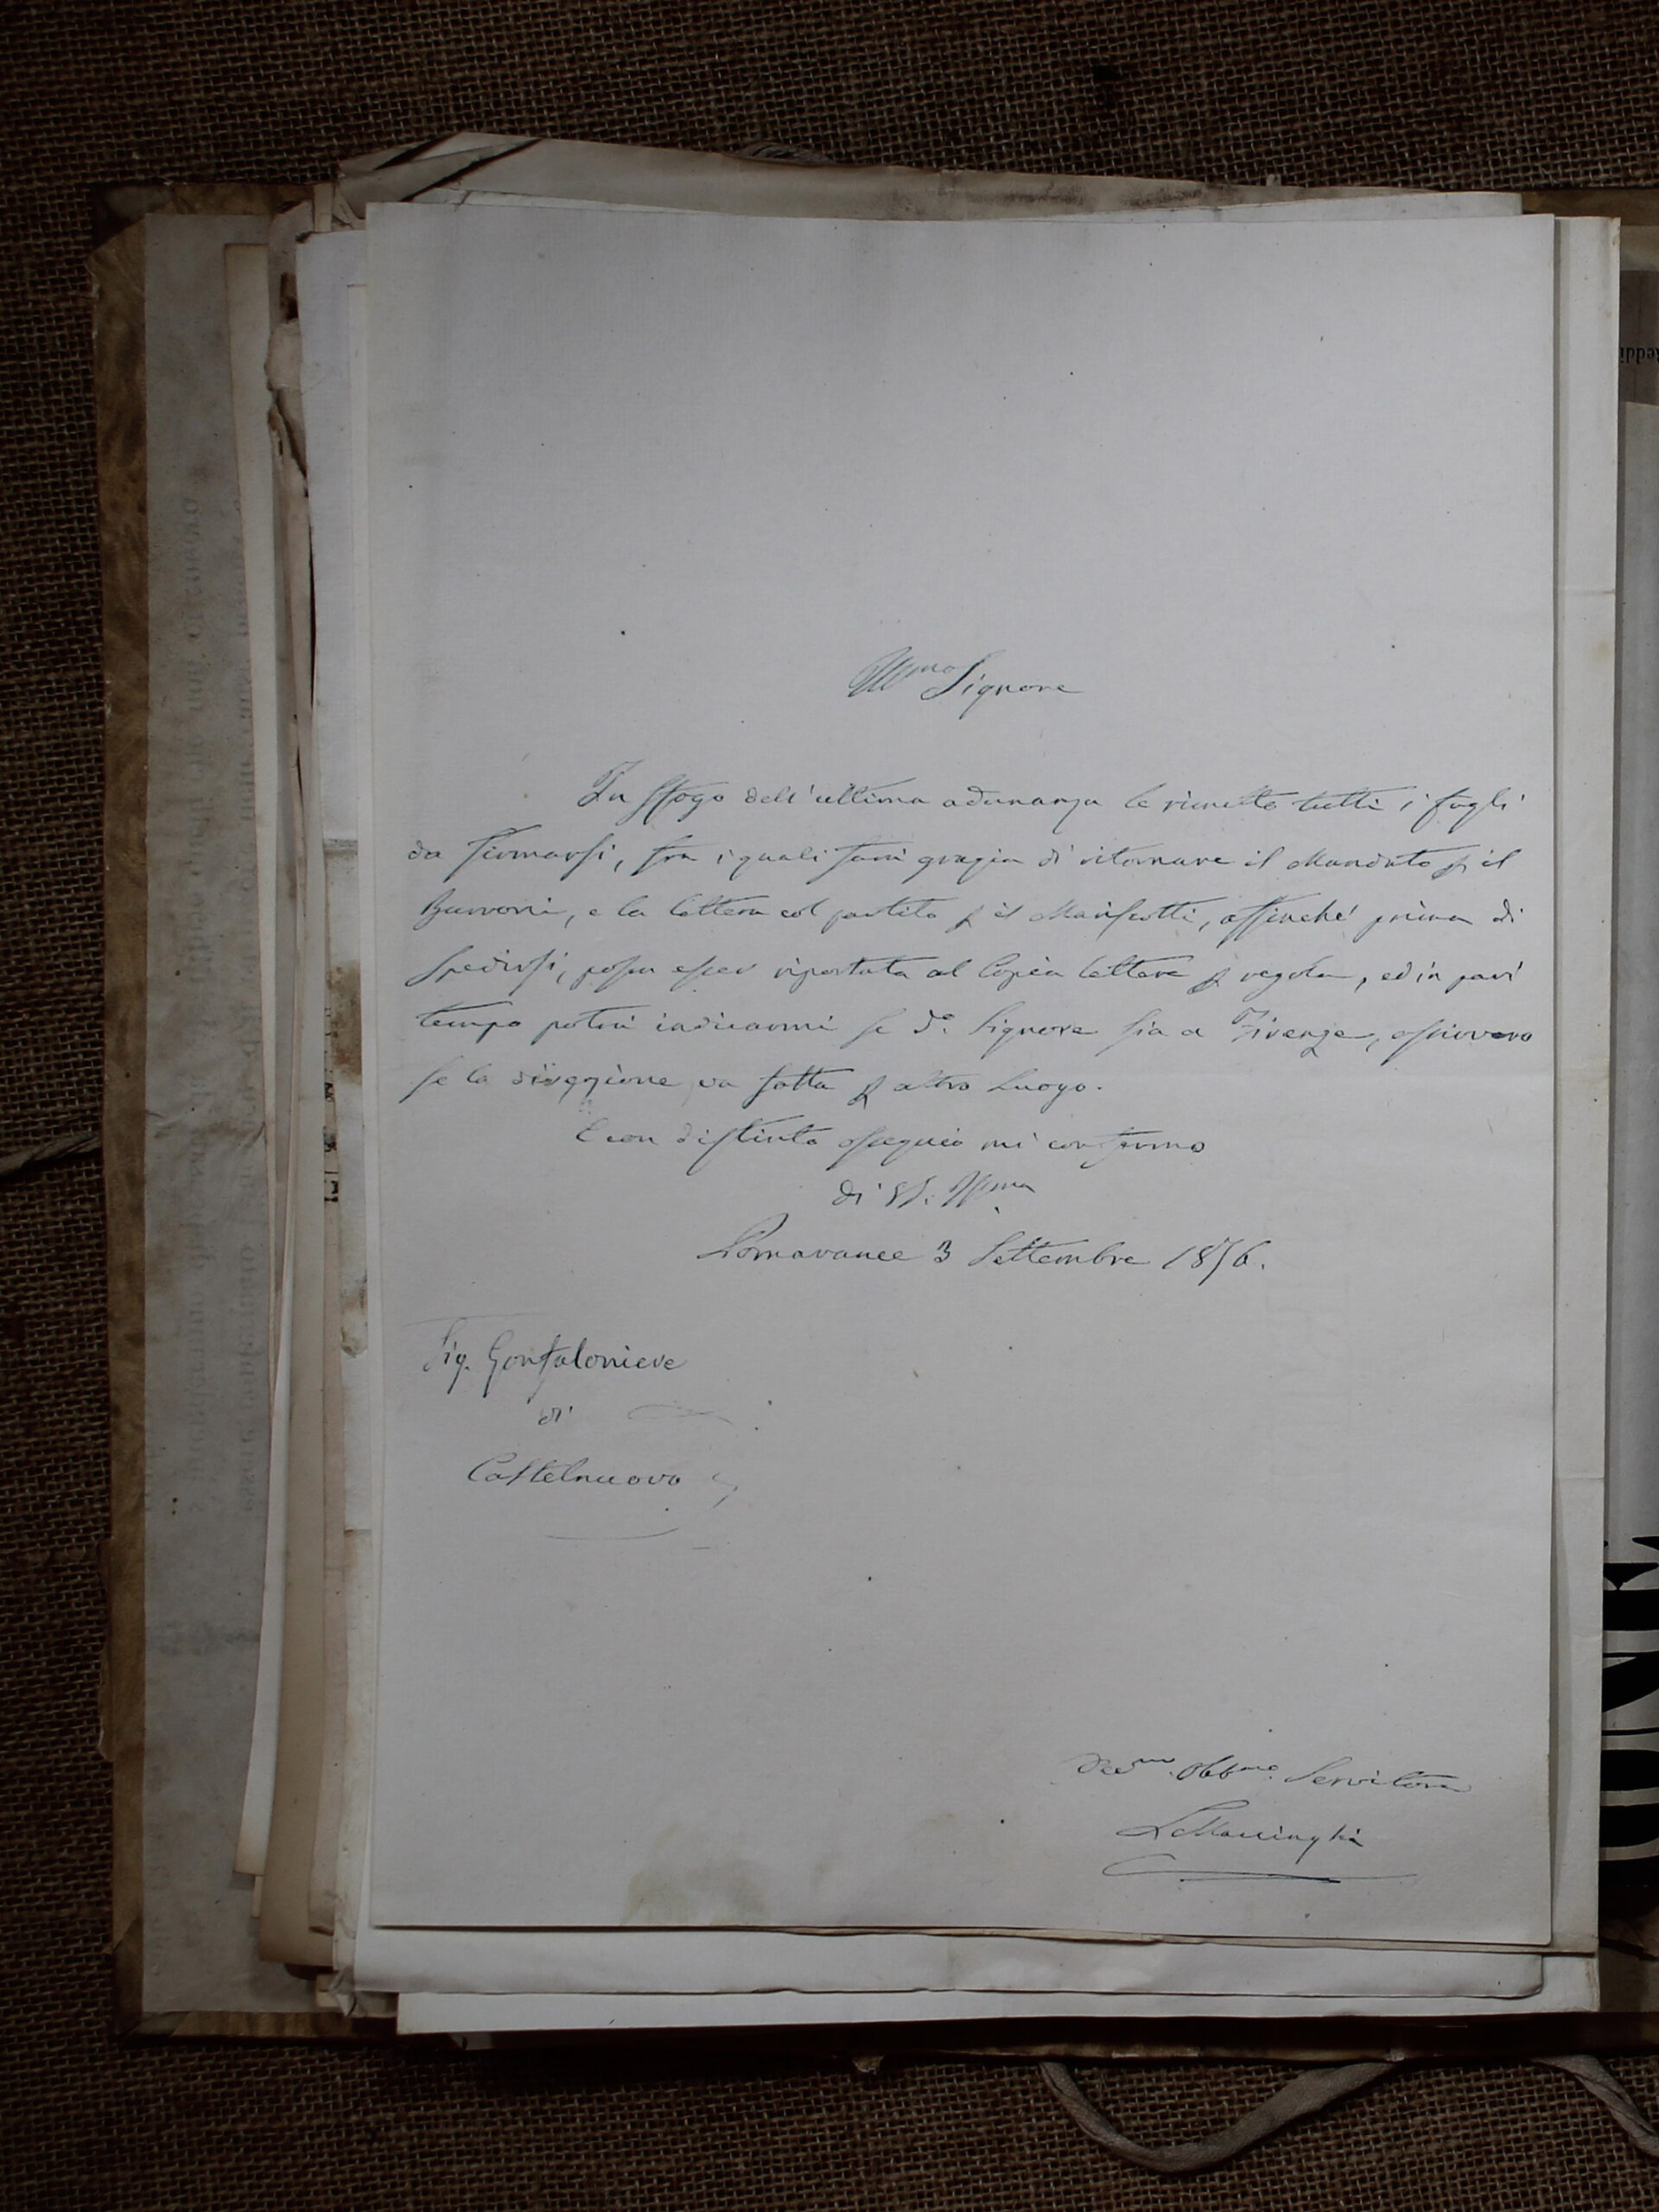 Ill.mo Signore
In sfogo dell'ultima adunanza le rimetto tutti i fogli
da firmarsi, fra i quali farà grazia di ritornare il Mandato p il
Burroni, e la lettera col partito p il Mariscotti, affinché prima di
spedirsi, possa esser riportata al Copia lettere p regola, ed in pari
tempo potrà indicarmi se d.o Signore sia a Firenze, ossivvero
se la direzione va fatta p altro Luogo.
E con distinto ossequio mi confermo
di VS. Ill.ma
Pomarance 3 Settembre 1856.
Sig. Gonfaloniere
di
Castelnuovo
Dev.mo Obb.mo Servitore